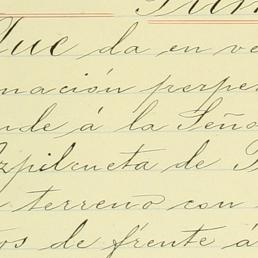 Que da en ve
nación perpe
nde á la Seño
zpilcueta de
terreno con
os de frente á